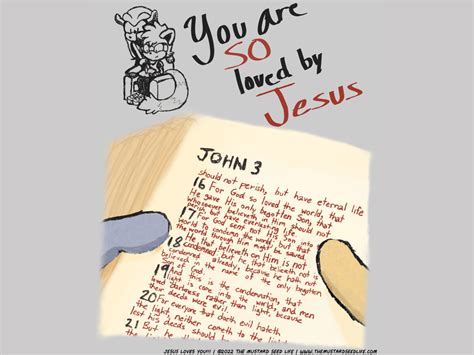 You are
SO
loved by
Jesus
JOHN 3
should not perish, but have eternal life
16 For God so loved the world, that
He gave His only begotten Son, that
whosoever believeth in Him, should not
but have everlasting life.
17 For God sent not His Son into
world to condemn the world; but that
the world through Him might be saved.
18 He that believeth on Him is not
condemned
already, because he hath not
believed in the name of the only begotten
God.
19 And
condemnation, that
light is come into the world, and men
rather than light, because
their deeds were evil.
20 For everyone that doeth evil hateth
neither cometh to the light
lest his
21 But
JESUS LOVES YOU!!! | @2022 THE MUSTARD SEED LIFE | WWW.THEMUSTARDSEEDLIFE.COM